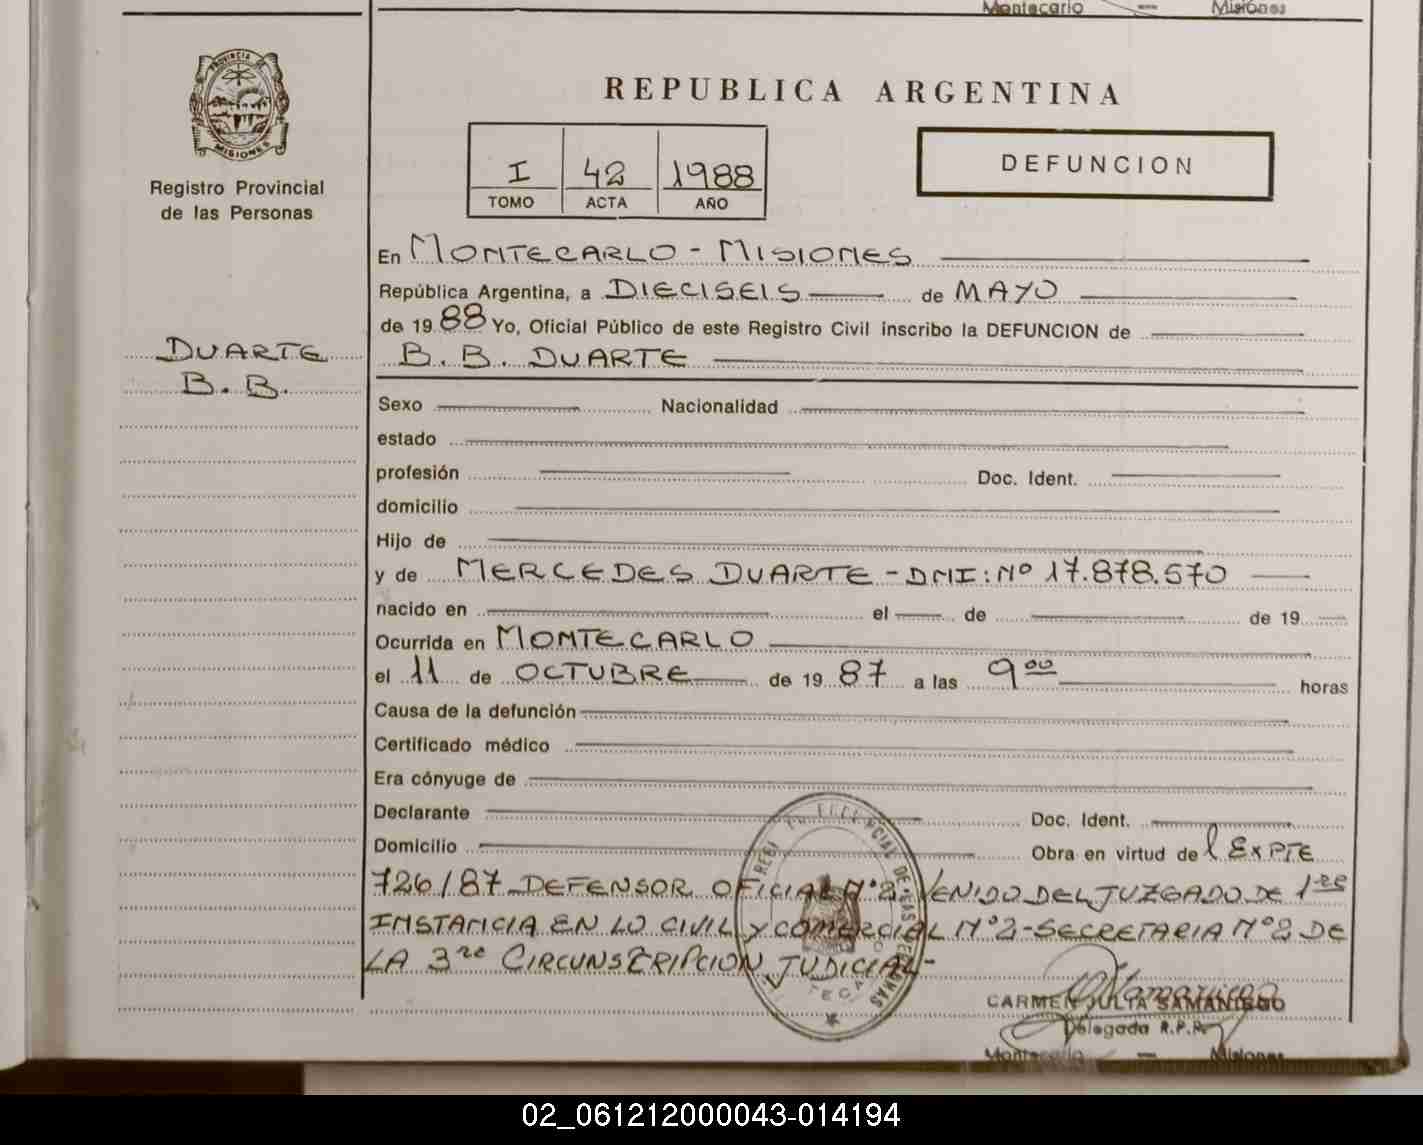 Montecarlo — Misiones
PROVINCIA DE
MISIONES
Registro Provincial
de las Personas
DUARTE
B. B.
REPUBLICA ARGENTINA
I 42 1988
TOMO ACTA AÑO
DEFUNCION
En MONTECARLO - MISIONES
República Argentina, a DIECISEIS de MAYO
de 1988 Yo, Oficial Público de este Registro Civil inscribo la DEFUNCION de
B. B. DUARTE
Sexo Nacionalidad
estado
profesión Doc. Ident.
domicilio
Hijo de
y de MERCEDES DUARTE - DNI: Nº 17.878.570
nacido en el de de 19
Ocurrida en MONTECARLO
el 11 de OCTUBRE de 1987 a las 9 00 horas
Causa de la defunción
Certificado médico
Era cónyuge de
Declarante Doc. Ident.
Domicilio Obra en virtud del EXPTE
726/87 DEFENSOR OFICIAL Nº 2 VENIDO DEL JUZGADO DE 1ra
INSTANCIA EN LO CIVIL Y COMERCIAL Nº 2 - SECRETARIA Nº 2 DE
LA 3ra CIRCUNSCRIPCION JUDICIAL -
CARMEN JULIA SAMANIEGO
Delegada R.P.P.
Montecarlo — Misiones
02_061212000043-014194